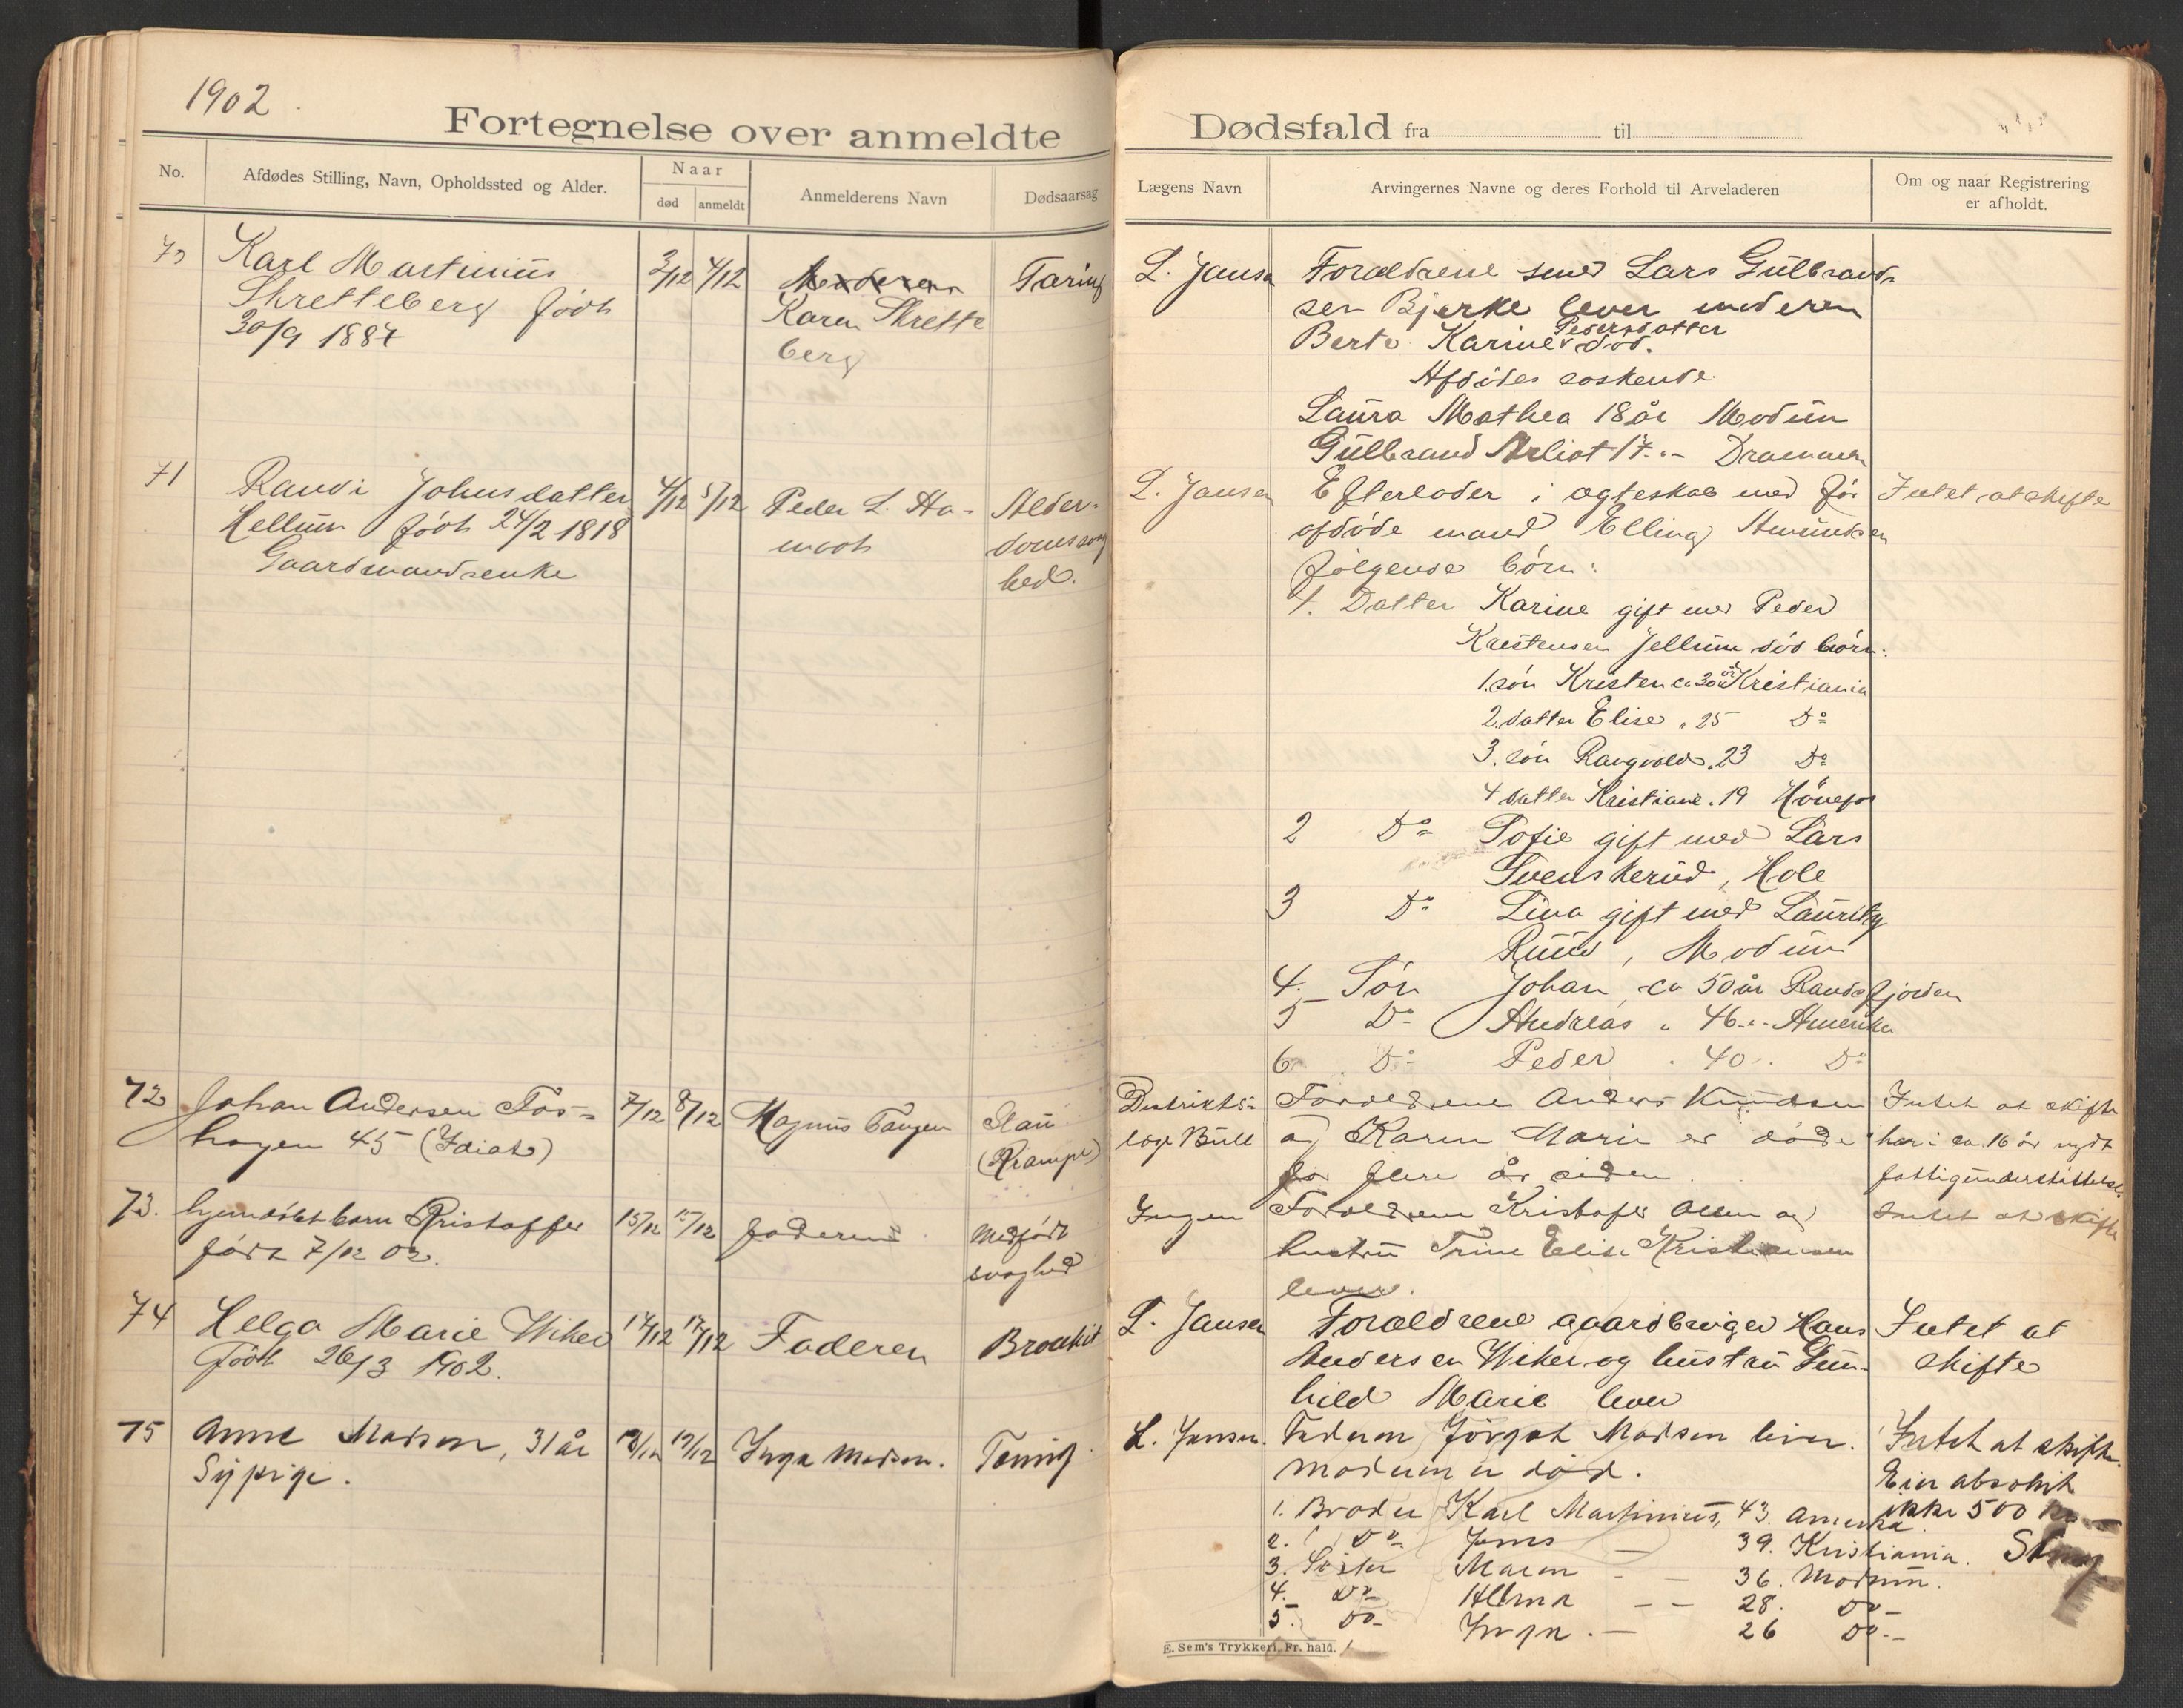 1902
Fortegnelse over anmeldte
No.
Afdødes Stilling, Navn, Opholdssted og Alder.
Naar
død
anmeldt
Anmelderens Navn
Dødsaarsag
Karl Martinius
Skretteberg født
30/9 1884
3/12 4/12
Karen Skrette
berg
Tæring
71
Randi Johnsdatter
Hellum født 24/2 1818
Gaardmandsenke
4/12 5/12
Peder L. Ha-
moth
Alder-
domssvag
hed.
72
Johan Andersen Fos-
haugen 45 (Idiot)
7/12 8/12
Magnus Tangen
Slag
(Krampe)
73.
hjemdøbt barn Kristoffer
født 7/12 02.
15/12 15/12
faderen
Medfødt
svaghed
74
Helga Marie Wiker
født 26/3 1902.
17/12 17/12
Faderen
Bronkit
75
Anne Madsen, 31 år
Sypige.
18/12 19/12
Inga Madsen.
Tæring
Dødsfald fra til
Lægens Navn
Arvingernes Navne og deres Forhold til Arveladeren
Om og naar Registrering
er afholdt.
L. Jansen
Forældrene smed Lars Gulbrand-
sen Bjerke lever moderen
Berte Karine Pedersdatter død.
Afdødes søskende
Laura Mathea 18 år Modum
Gulbrand 17 " - Drammen
L. Jansen
Efterlader i ægteskab med før
afdøde mand Elling Amundsen
følgende børn:
1. Datter Karine gift med Peder
Kristensen Jellum død børn:
1. søn Kristen ca 30 år Kristiania
2. datter Elise " 25 Do
3. søn Rangvald " 23 Do
4 datter Kristiane " 19 Hönefos
2 Do Sofie gift med Lars
Svenskerud, Hole
3 Do Lina gift med Lauritz
Ruud, Modum
4. Søn Johan ca 50 år Randsfjorden
5 Do Andreas " 46 " - Amerika
6 Do Peder " 40 " Do
Intet at skifte
Distrikts-
læge Bull
Forældrene Anders Knudsen
og Karen Marie er døde
for flere år siden
Intet at skifte
har i ca. 16 år nydt
fattigunderstøttelse.
Ingen
Forældrene Kristofer Olsen og
hustru Trine Elise Kristiansen
lever.
Intet at skifte
L. Jansen
Forældrene gaardbruger Hans
Andersen Wiker og hustru Gun-
hild Marie lever
Intet at
skifte
L. Jansen.
Faderen Jørgen Madsen lever.
Moderen er død.
1. Broder Karl Martinius, 43. Amerika
2. Do Jens - 39. Kristiania.
3. Søster Maren - - 36. Modum.
4. Do Alma - - 28. Do -
5. Do Inga. - 26 Do -
Intet at skifte.
Eier absolut
ikke 500 kr.
E. Sem's Trykkeri, Fr. hald.